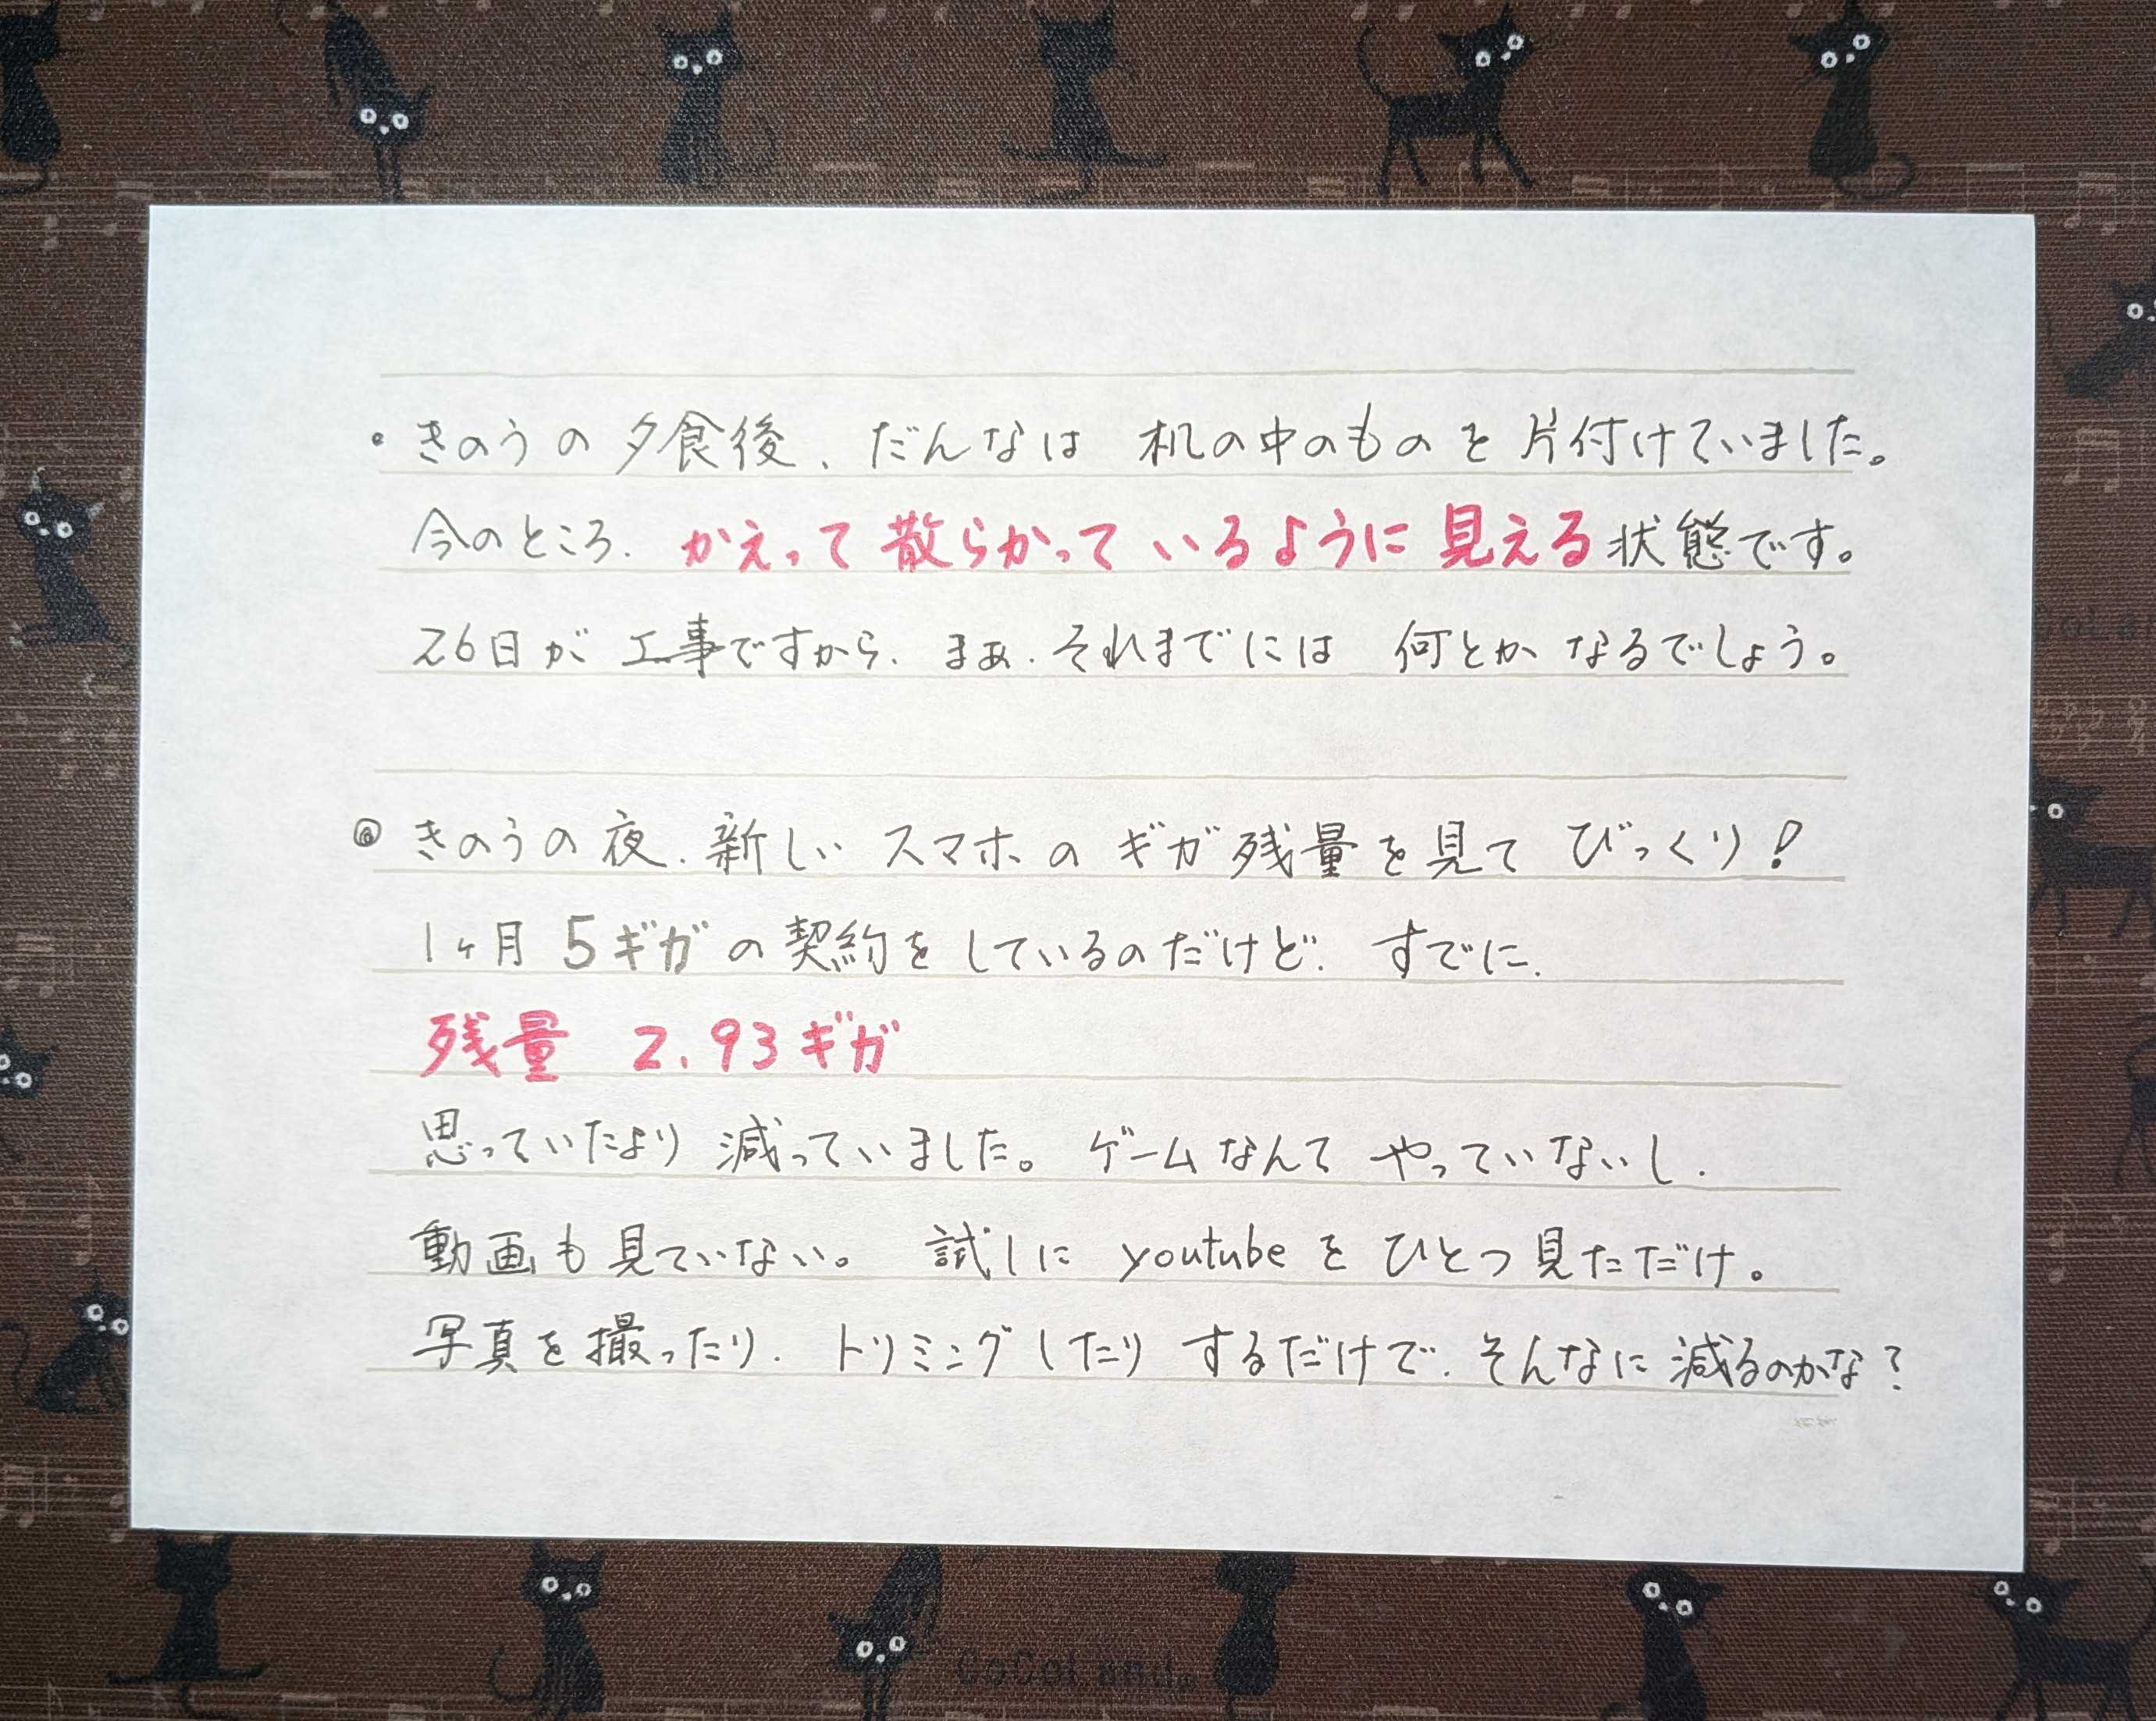 ・きのうの夕食後、だんなは 机の中のものを片付けていました。
今のところ、かえって散らかっているように見える状態です。
26日が工事ですから、まぁ、それまでには 何とかなるでしょう。
◎きのうの夜、新しいスマホのギガ残量を見てびっくり!
1ヶ月 5ギガの契約をしているのだけど、すでに、
残量 2.93ギガ
思っていたより減っていました。ゲームなんてやっていないし、
動画も見ていない。 試しに youtubeをひとつ見ただけ。
写真を撮ったり、トリミングしたりするだけで、そんなに減るのかな?
CoCoLand.